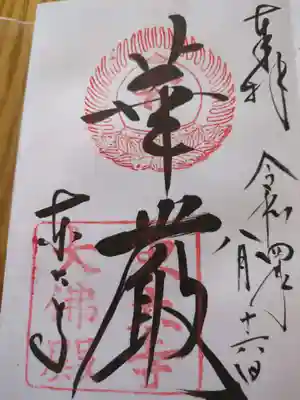 奉拝
令和四年
八月
十六日
華厳
東大寺
東大寺
大佛殿